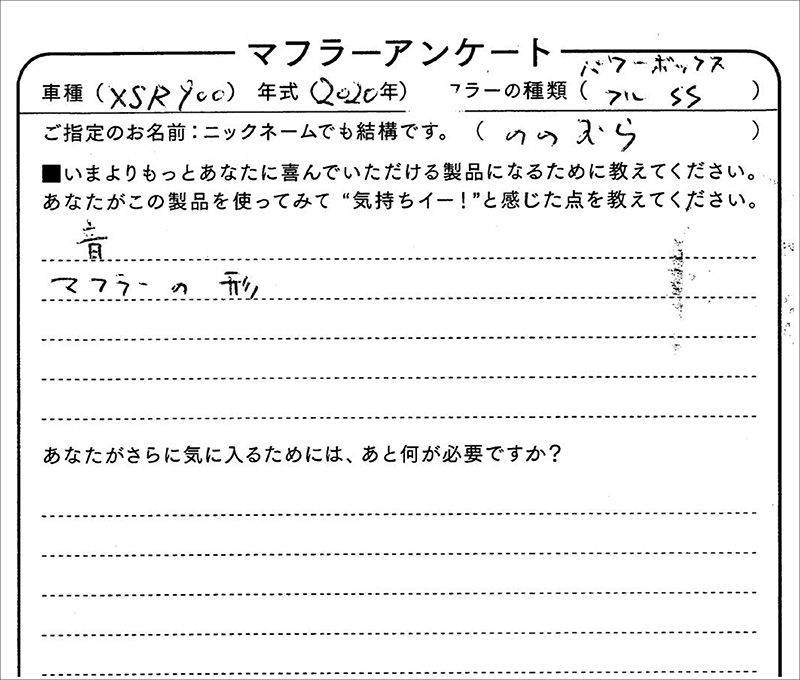 マフラーアンケート
車種（XSR900）　年式（2020年）　フラーの種類（パワーボックス フル SS）
ご指定のお名前：ニックネームでも結構です。（ののむら）
■いまよりもっとあなたに喜んでいただける製品になるために教えてください。
あなたがこの製品を使ってみて“気持ちイー！”と感じた点を教えてください。
音
マフラーの形
あなたがさらに気に入るためには、あと何が必要ですか？